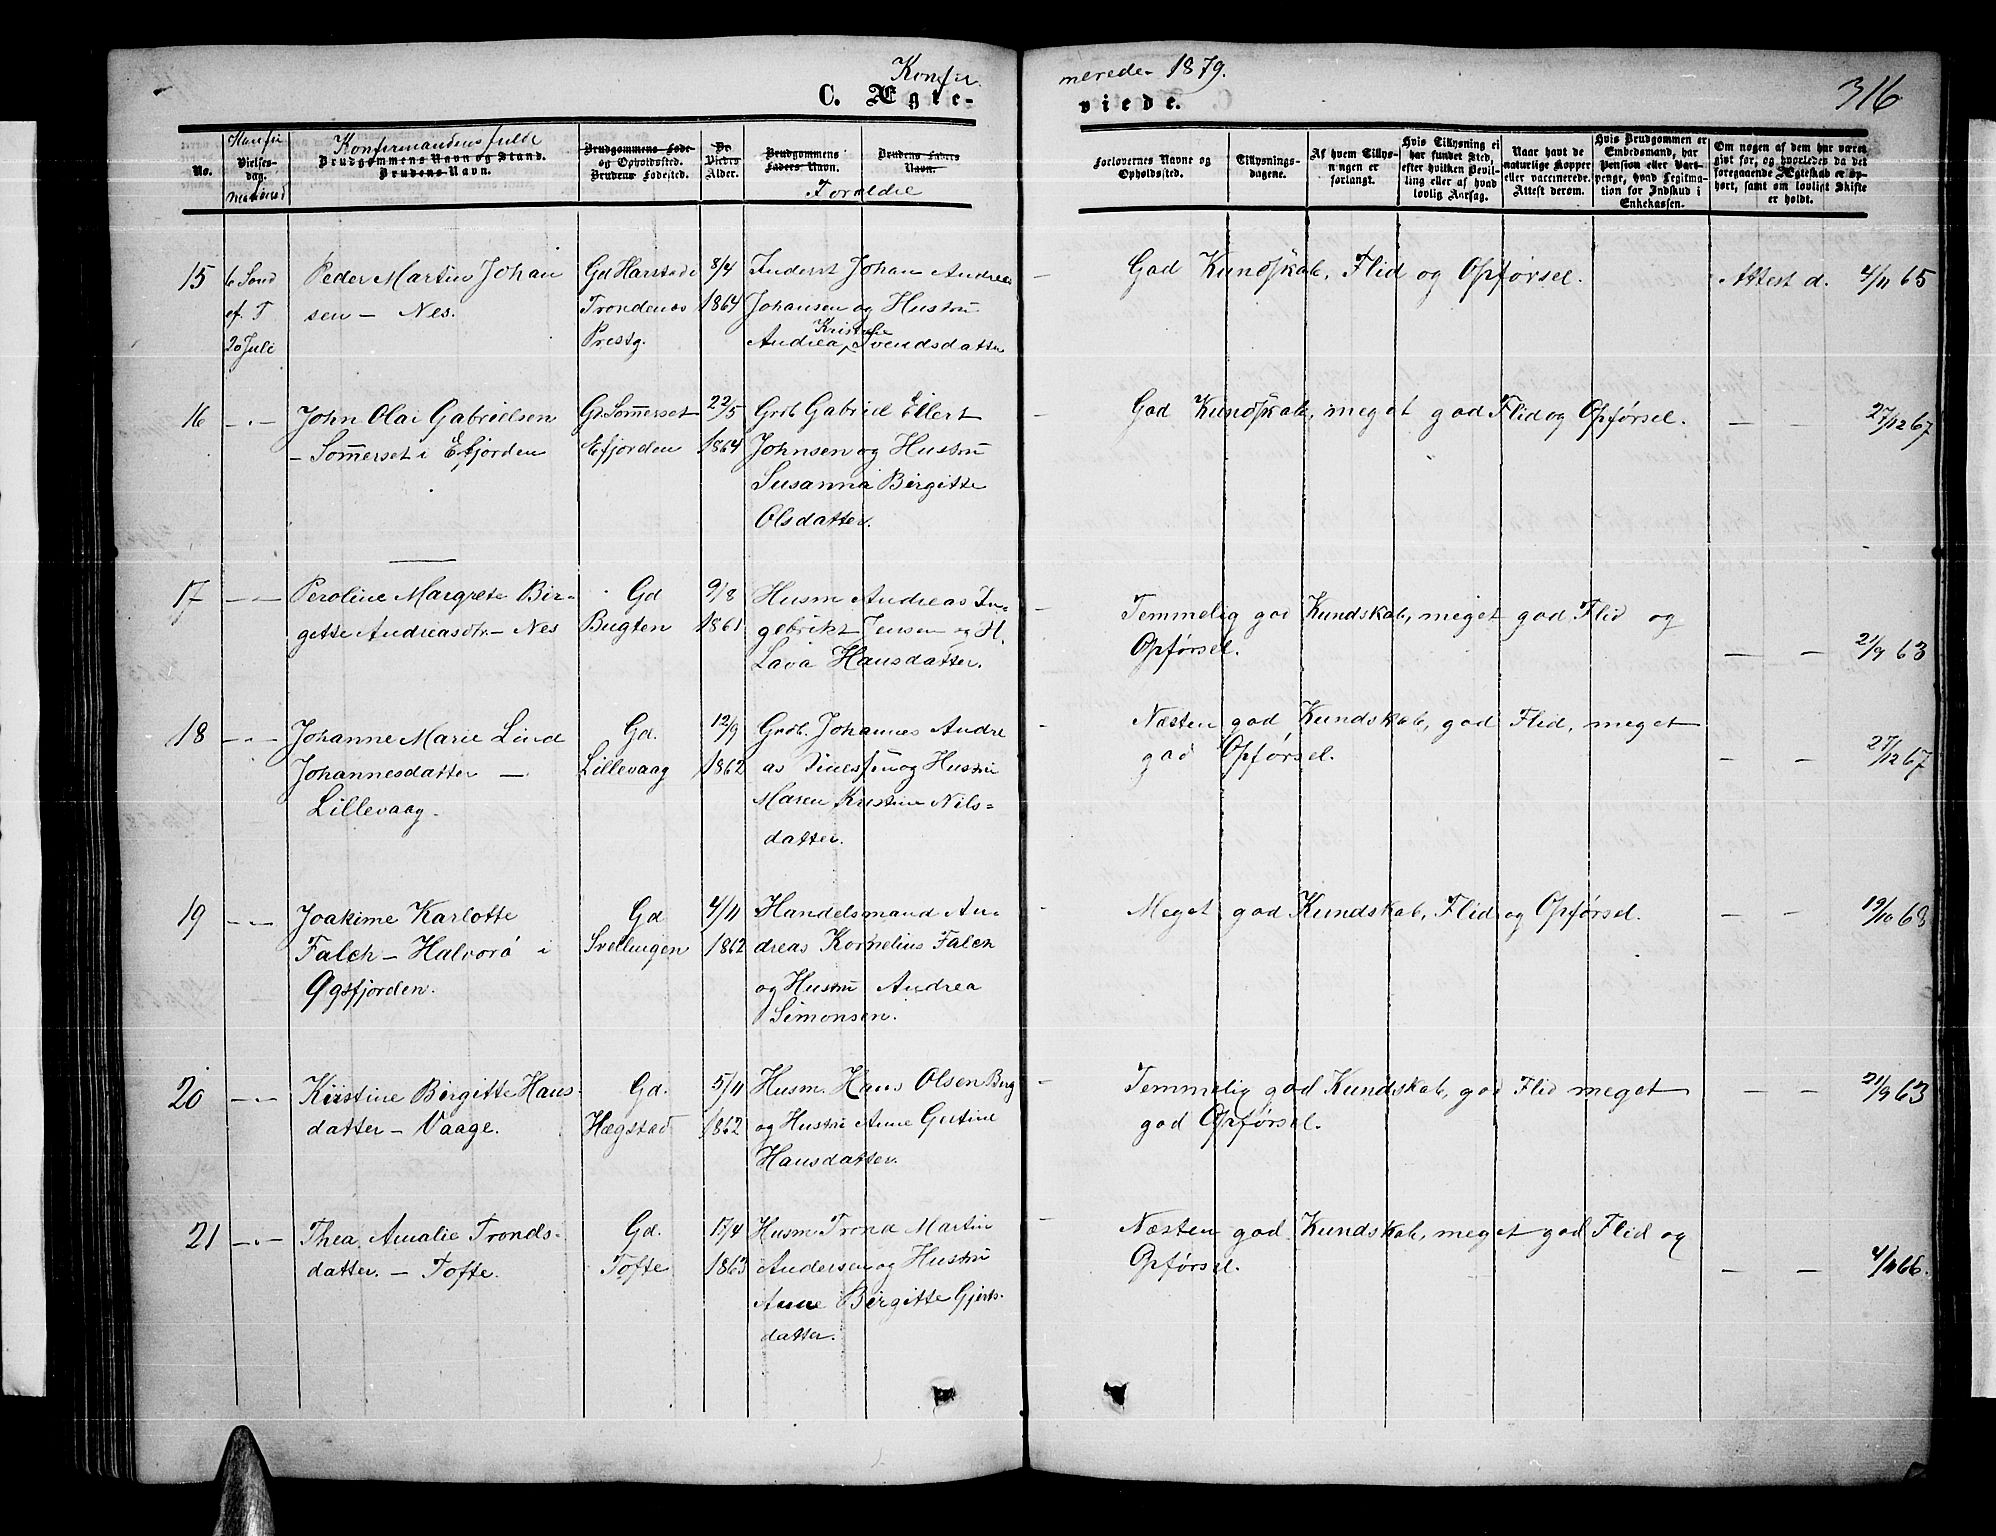 Konfir
merede 1879.
316
C. Ægte-
viede.
No.
Konfir
Vielses-
dag.
Konfirmandens fulde
Brudgommens Navn og Stand.
Brudens Navn.
Brudgommens Føde-
og Opholdssted.
Brudens Fødested.
De
Viedes
Alder.
Brudgommens
Faders Navn.
Brudens Faders
Navn.
Forældre
Forlovernes Navne og
Opholdssted.
Tillysnings-
dagene.
Af hvem Tillys-
ningen er
forlangt.
Hvis Tillysning ei
har fundet Sted,
efter hvilken Bevil-
ling eller af hvad
lovlig Aarsag.
Naar havt de
naturlige Kopper
eller vaccinerede.
Attest derom.
Hvis Brudgommen er
Embedsmand, har
Pension eller Vart-
penge, hvad Legitima-
tion for Indskud i
Enkekassen.
Om nogen af dem har været
gift før, og hvorledes da det
foregaaende Ægteskab er op-
hørt, samt om lovligt Skifte
er holdt.
15 6 Sønd Peder Martin Johan Gd Harstad 8/4 Inderst Johan Andreas – God Kundskab, Flid og Opførsel. Attest d. 4/11 65
ef. T sen – Nes. Trondenæs 1864 Johansen og Hustru
20 Juli Prestg. Andrea Kristine Svendsdatter
16 – " – John Olai Gabrielsen Gd Sommerset 22/5 Grdb Gabriel Ellert – God Kundskab, meget god Flid og Opførsel. – – 27/12 67
– Sommerset i Efjorden Efjorden 1864 Johnsen og Hustru
Susanna Birgitte
Olsdatter.
17 – – Peroline Margrete Bir- Gd 9/8 Husm Andreas In- – Temmelig god Kundskab, meget god Flid og
gette Andreasdtr – Nes Bugten 1861 gebrikt Jensen og H. Opførsel. – – 21/9 63
Lava Hansdatter.
18 – " – Johanne Marie Lind Gd. 12/9 Grdb. Johannes Andre – Næsten god Kundskab, god Flid, meget
Johannesdatter – Lillevaag 1862 as og Hustru god Opførsel. – – 27/12 67
Lillevaag. Maren Kristine Nils-
datter.
19 – – Joakime Karlotte Gd 4/11 Handelsmand An- – Meget god Kundskab, Flid og Opførsel. – – 19/10 63
Falch – Halvorø i Svellingen 1862 dreas Kornelius Falch
Øgsfjorden. og Hustru Andrea
Simonsen.
20 – " – Kirstine Birgitte Hans- Gd. 5/11 Husm. Hans Olsen Berg – Temmelig god Kundskab, god Flid meget – – 21/9 63
datter – Vaage. Hægstad 1862 og Hustru Anne Gurtine god Opførsel.
Hansdatter.
21 – " – Thea Amalie Tronds- Gd. 17/4 Husm Trond Martin – Næsten god Kundskab, meget god Flid og
datter. – Tofte. Tofte 1863 Andersen og Hustru Opførsel. – – 4/11 66.
Anne Birgitte Gjerts-
datter.